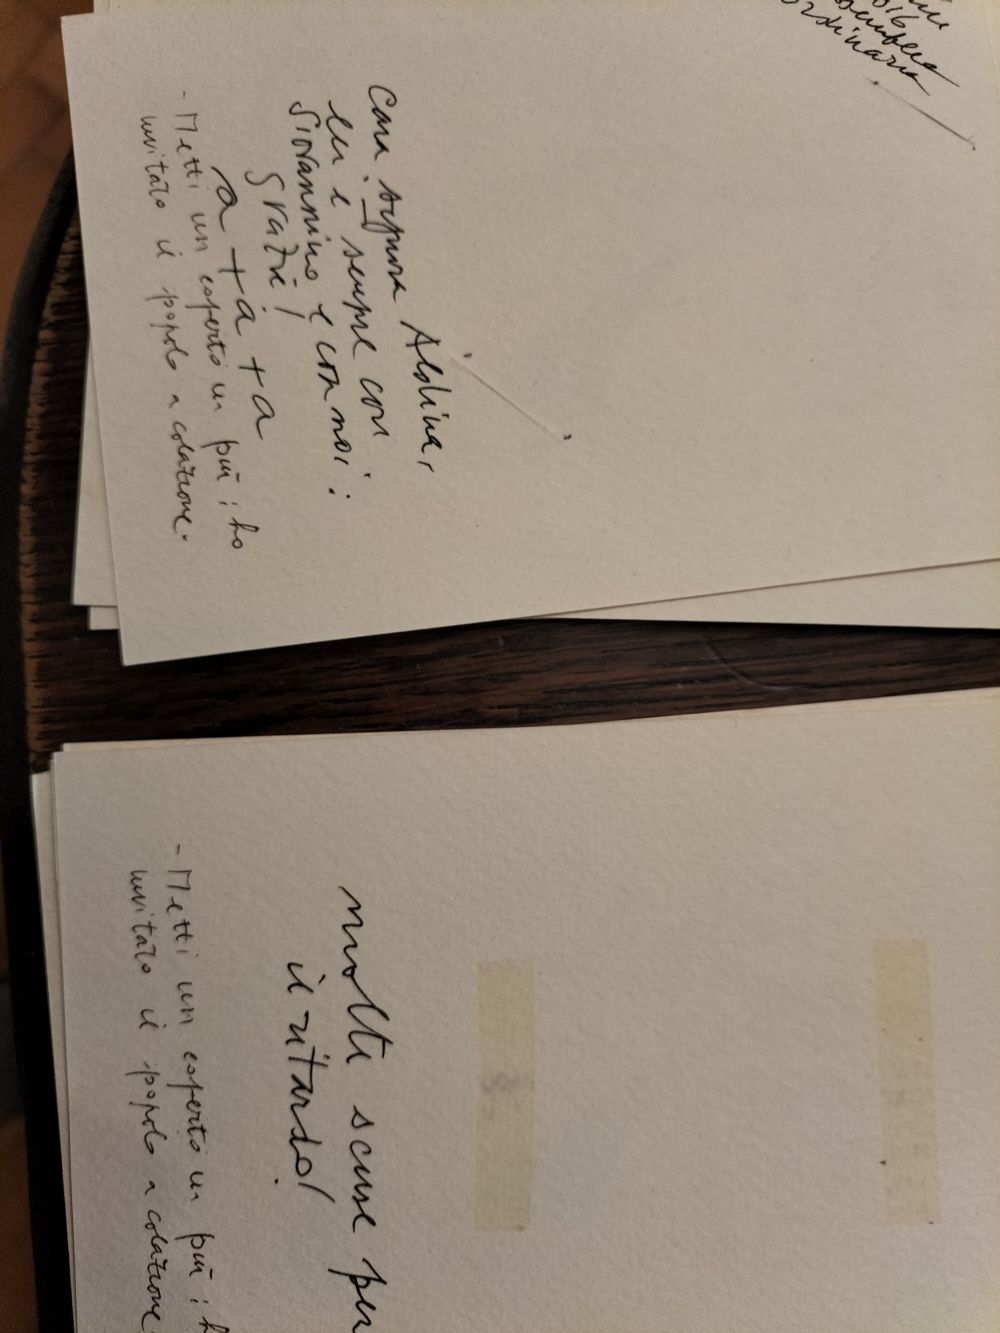 Cara signora Aldina,
lei è sempre con
Giovannino e con noi:
grazie!
a + a + a
- Metti un coperto in più: ho
invitato il popolo a colazione.
ordinaria
molte scuse per
il ritardo!
- Metti un coperto in più: h
invitato il popolo a colazione.